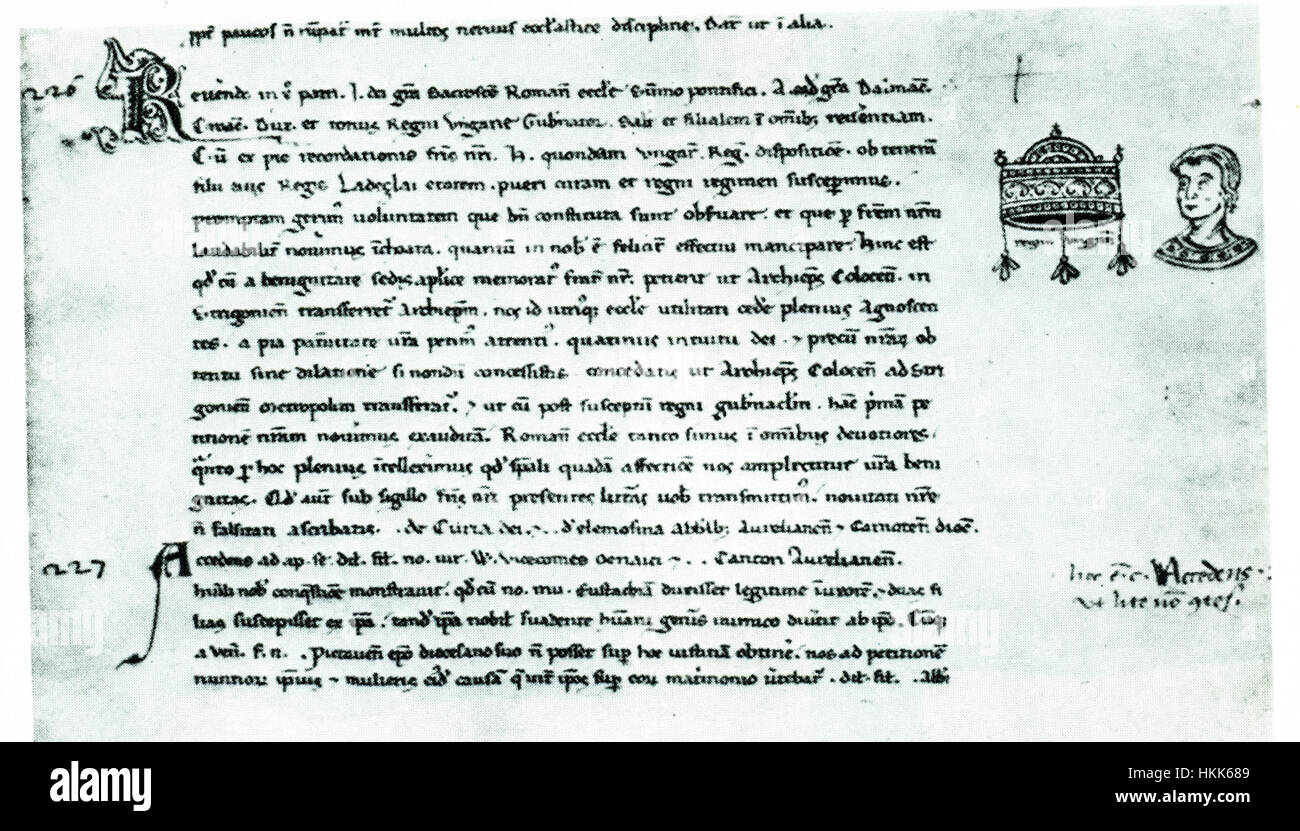 ppt paucos ñ rumpat᷑ mr̄ multos neruus eccl̄astice discipline. Dat᷑ ut ī alia.
226
Reuendo in x̄ patri. I. dei gr̄a Sacrosc̄e Roman̄ eccl̄e summo pontifici. A. ead̄ gr̄a Dalmac̄.
Croac̄. Dux. et totius Regni Vngarie Gubnator. salt̄ et filialem ī omib; reuerentiam.
Cū ex pie recordationis fr̄is nr̄i. H. quondam Vngar̄. Reg̅. dispositiōe. ob teneram
filii eius Regis Ladezlai etatem. pueri curam et regni regimen susceperimus.
promptam gerim᷒ uoluntatem que bn̄ constituta sunt obseruare. et que p fr̄em nr̄m
Laudabilit̄ nouimus īchoata. quantum in nob̄ ē feliciter effectui mancipare. Hinc est
qd̄ cū a benignitate sedis aplice memorat᷒ frater nr̄. petierit ut Archiep̄s Colocen̄. in
Strigonien̄ transferret᷑ Archiep̄m. nos id utriq; eccl̄e utilitati cedere plenius Agnoscen
tes. a pia paternitate ura petim᷒ attenti᷒. quatinus intuitu dei. ⁊ precū nr̄arꝝ ob
tentu sine dilatione si nondū concessistis concedatis ut Archiep̄s Colocen̄ ad Stri
gonien̄ metropolim transferat᷑. ⁊ ut cū post susceptū regni gubnaclm̄. hac p̄mam pe
titionē nr̄am nouimus exauditā. Roman̄ eccl̄e tanto simus ī omib; deuotiores.
quāto p hoc plenius ītellexerimus qd̄ sp̄ali quadā affectiōe nos amplectitur ur̄a beni
gnitas. Qd̄ aut̄ sub sigillo fr̄is nr̄i presentes litt̄as uob̄ transmittim᷒. nouitati nr̄e
ñ falsitati ascribatis. .de Curia dei. ⁊ .. d̄ elemosina abbib; Aurelianen̄ ⁊ Carnoten̄ dioc̄.
regni ungarie
227
Accedens ad ap. se. dil. fil. no. uir. W. Vicecomes ⁊ .. Cantor Aurelianen̄.
humili nob̄ conquestiōe monstrauit. qd̄ cū no. mu. Eustachiā duxisset legitime ī uxorē. ⁊ duas fi
lias suscepisset ex ip̄a. tandē ip̄a nobil̄ suadente humani generis inimico diuertit ab ip̄o. Cūq;
a uen̄. f. n. Pictauen̄ ep̄o diocesano suo ñ posset sup̄ hoc iustitiā obtinē. nos ad petitionē
nuntiorꝝ ipsius ⁊ mulieris eiusd̄ causā que uertit᷑ ip̄os sup̄ eorꝝ matrimonio uertebat᷑. dil. fil. abb̄i
hoc ē. c. Accedens.
Ut lite nō 9tes.
alamy
Image ID: HKK689
www.alamy.com